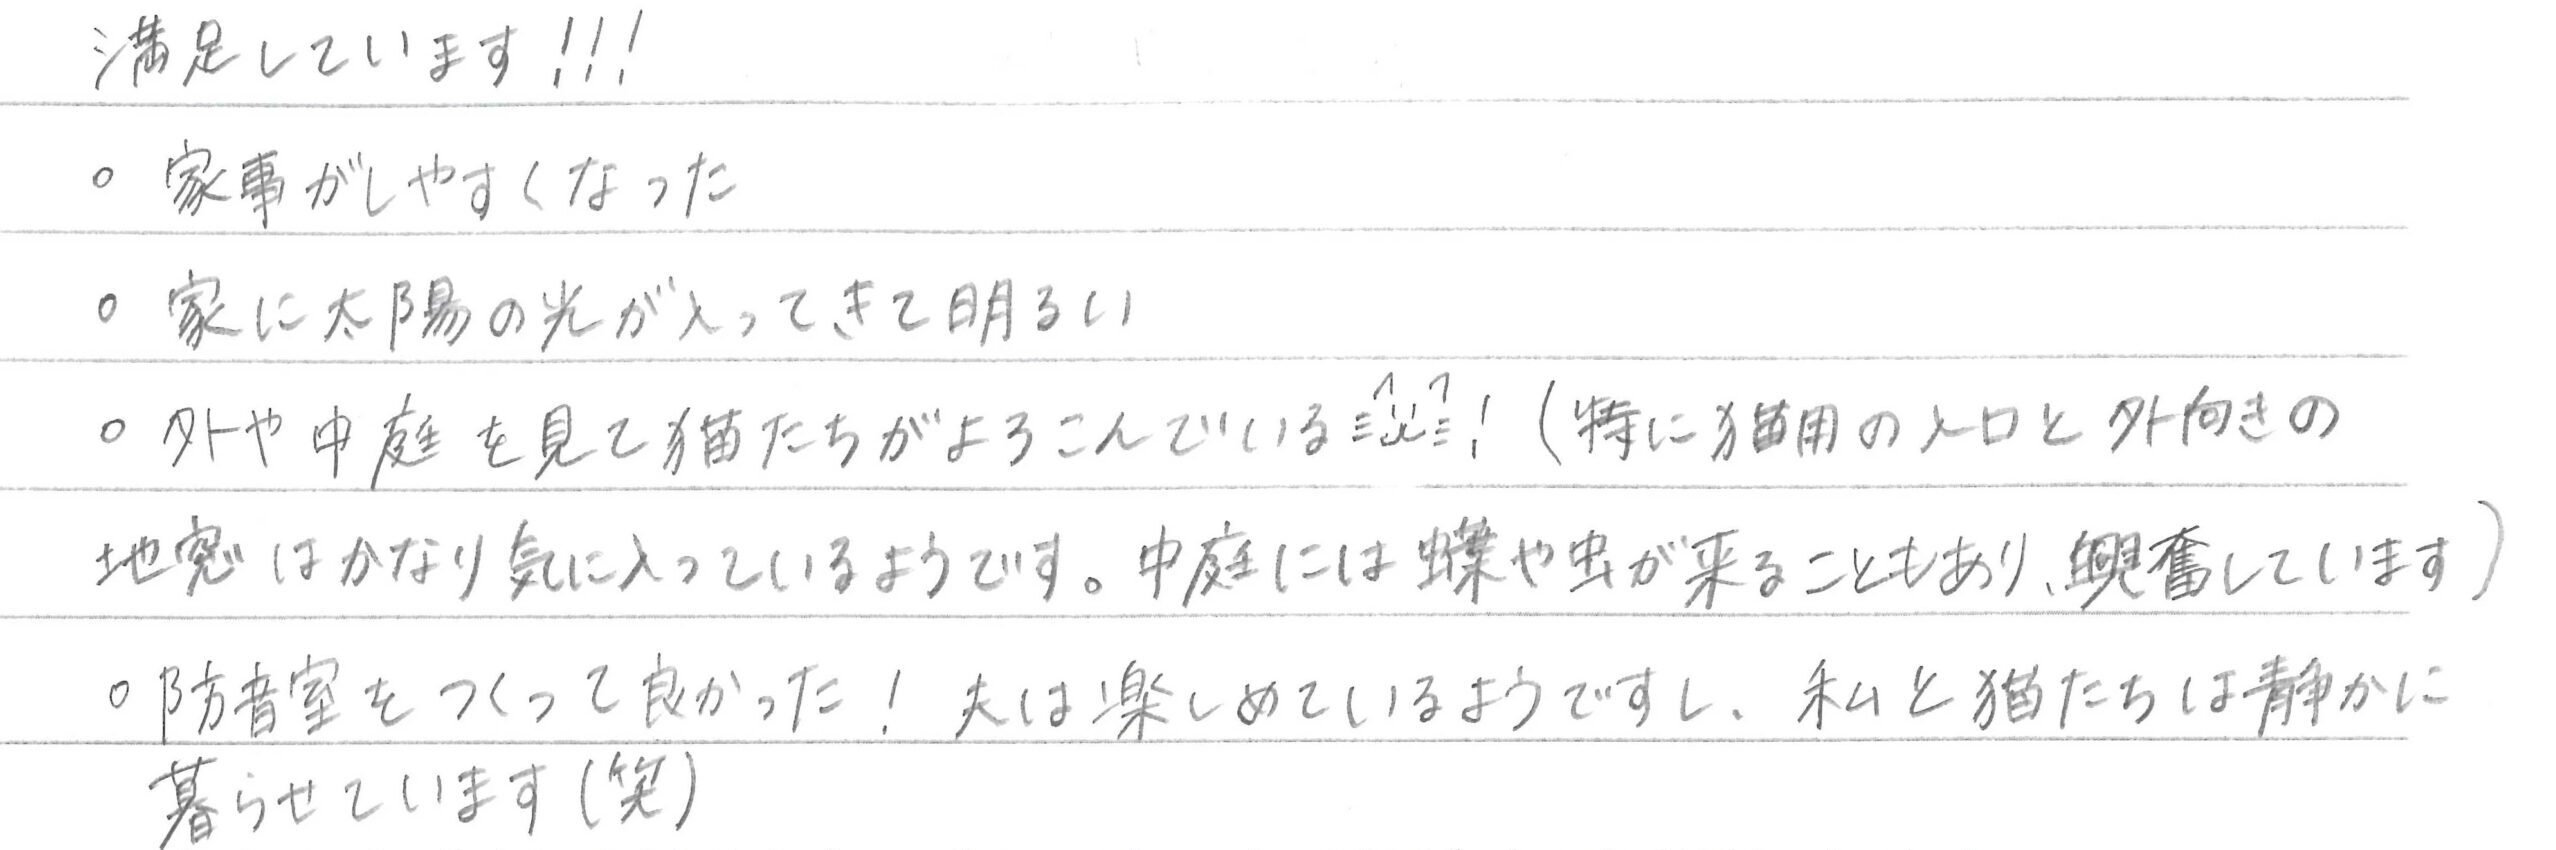 満足しています!!!
○ 家事がしやすくなった
○ 家に太陽の光が入ってきて明るい
○ 外や中庭を見て猫たちがよろこんでいる!(特に猫用の入口と外向きの
地窓はかなり気に入っているようです。中庭には蝶や虫が来ることもあり、興奮しています)
○ 防音室をつくって良かった! 夫は楽しめているようですし、私と猫たちは静かに
暮らせています(笑)